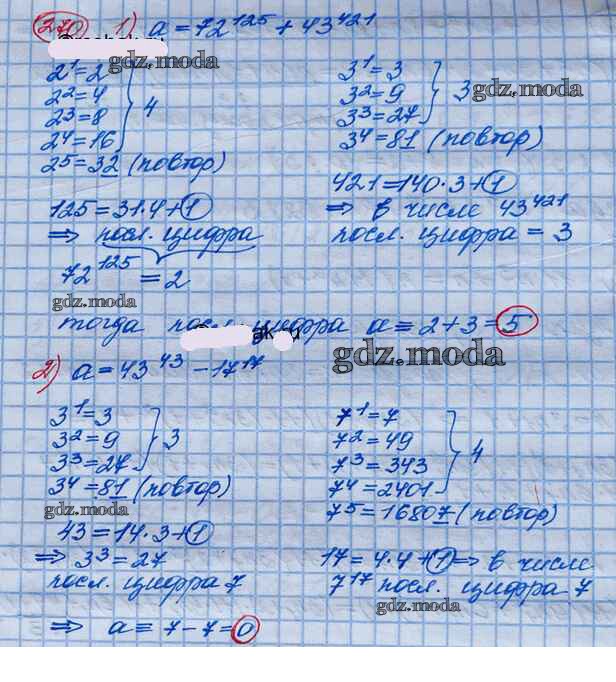 270 1) a = 72^125 + 43^421
gdz.moda
2^1=2
2^2=4
2^3=8
2^4=16
2^5=32 (повтор)
4
3^1=3
3^2=9
3^3=27
3
gdz.moda
3^4=81 (повтор)
125=31·4+1
⇒ посл. цифра
72^125=2
421=140·3+1
⇒ в числе 43^421
посл. цифра = 3
gdz.moda
тогда посл. цифра a = 2+3=5
gdz.moda
2) a=43^43-17^17
3^1=3
3^2=9
3^3=27
3
3^4=81 (повтор)
gdz.moda
43=14·3+1
⇒ 3^3=27
посл. цифра 7
7^1=7
7^2=49
7^3=343
7^4=2401
4
7^5=16807 (повтор)
gdz.moda
17=4·4+1 ⇒ в числе
7^17 посл. цифра 7
gdz.moda
⇒ a = 7-7=0